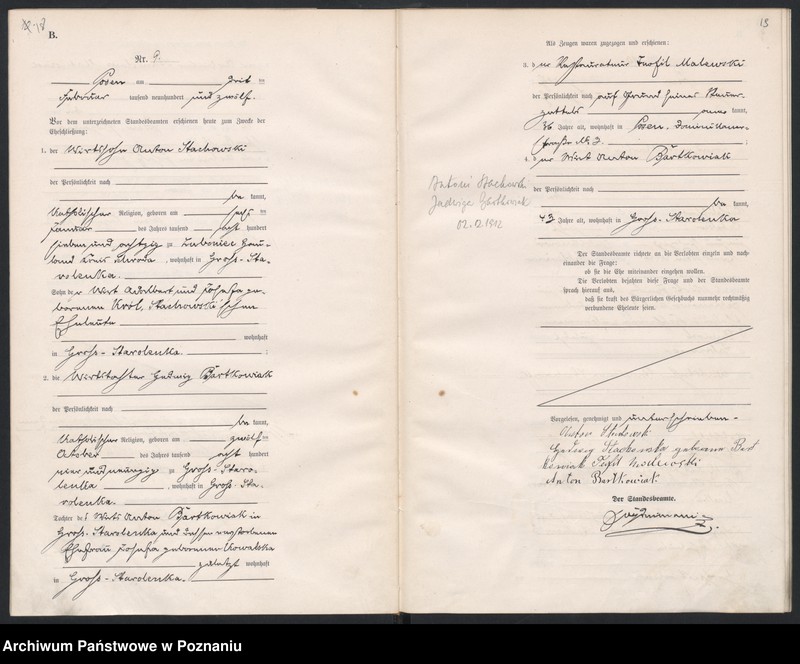 B.
Nr. 9.
Posen am
Februar tausend neunhundert und zwölf.
Vor dem unterzeichneten Standesbeamten erschienen heute zum Zwecke der
Eheschließung:
1. der Wirtssohn Anton Stachowski
der Persönlichkeit nach
be kannt,
katholischer Religion, geboren am sechs ten
Januar des Jahres tausend acht hundert
sieben und achtzig zu
Kreis Schroda, wohnhaft in Gross-Sta-
rolenka.
Sohn der Wirt Adalbert und Josefa ge-
borenen Król, Stachowski'schen
Eheleute
wohnhaft
in Gross-Starolenka. ;
2. die Wirtstochter Hedwig Bartkowiak
der Persönlichkeit nach
be kannt,
katholischer Religion, geboren am zwölf ten
Oktober des Jahres tausend acht hundert
vier und neunzig zu Gross-Staro-
lenka, wohnhaft in Gross-Sta-
rolenka.
Tochter des Wirts Anton Bartkowiak in
Gross-Starolenka und dessen verstorbenen
Ehefrau Josefa geborenen Kowalska
zuletzt wohnhaft
in Gross-Starolenka.
13
Als Zeugen waren zugezogen und erschienen:
3. der Restaurateur Teofil Malewski
der Persönlichkeit nach auf Grund seines Steuer-
zettels aner kannt,
36 Jahre alt, wohnhaft in Posen, Dominikaner-
straße No 3. ;
4. der Wirt Anton Bartkowiak
der Persönlichkeit nach
be kannt,
43 Jahre alt, wohnhaft in Gross-Starolenka
Antoni Stachowski
Jadwiga Bartkowiak
02.12.1912
Der Standesbeamte richtete an die Verlobten einzeln und nach-
einander die Frage:
ob sie die Ehe miteinander eingehen wollen.
Die Verlobten bejahten diese Frage und der Standesbeamte
sprach hierauf aus,
daß sie kraft des Bürgerlichen Gesetzbuchs nunmehr rechtmäßig
verbundene Eheleute seien.
Vorgelesen, genehmigt und unterschrieben.
Anton Stachowski
Hedwig Stachowska geborene Bart
kowiak Teofil Malewski
Anton Bartkowiak
Der Standesbeamte.
Archiwum Państwowe w Poznaniu